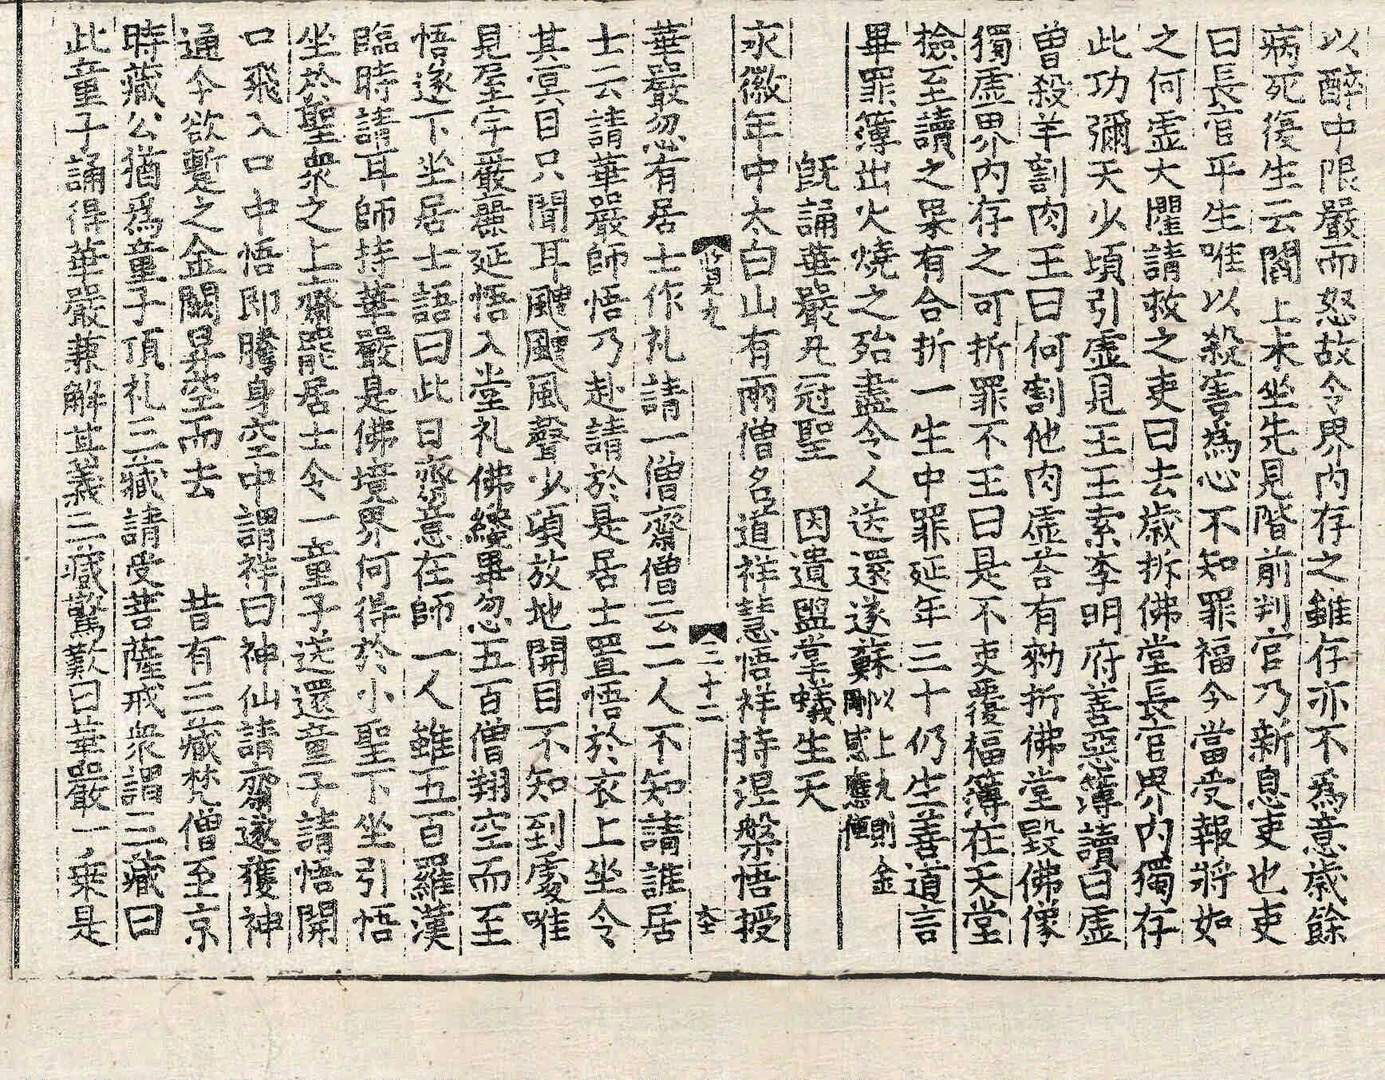 以醉中限嚴而怒故令界內存之雖存亦不爲意歲餘
病死復生云閻上未坐先見階前判官乃新息吏也吏
曰長官平生唯以殺害爲心不知罪福今當受報將如
之何虛大懼請救之吏曰去歲拆佛堂長官界內獨存
此功彌天少頃引虛見王王索李明府善惡簿讀曰虛
曾殺羊割肉王曰何割他肉虛荅有勑折佛堂毀佛像
獨虛界內存之可折罪不王曰是不吏覆福簿在天堂
檢至讀之果有合折一生中罪延年三十仍生善道言
畢罪簿出火燒之殆盡令人送還遂蘇以上九則金剛感應傳
旣誦華嚴九冠聖 因遺盥掌蟻生天
永徽年中太白山有兩僧名道祥慧悟祥持涅槃悟授
見九 二十二 大
華嚴忽有居士作礼請一僧齋僧云二人不知請誰居
士云請華嚴師悟乃赴請於是居士置悟於衣上坐令
其冥目只聞耳颼颼風聲少頃放地開目不知到處唯
見屋宇嚴麗延悟入堂礼佛纔畢忽五百僧翔空而至
悟遂下坐居士語曰此日齋意在師一人雖五百羅漢
臨時請耳師持華嚴是佛境界何得於小聖下坐引悟
坐於聖衆之上齋罷居士令一童子送還童子請悟開
口飛入口中悟即騰身空中謂祥曰神仙請齋遂獲神
通今欲暫之金闕昇空而去 昔有三藏梵僧至京
時藏公猶爲童子頂礼三藏請受菩薩戒衆謂三藏曰
此童子誦得華嚴兼解其義三藏驚歎曰華嚴一乘是